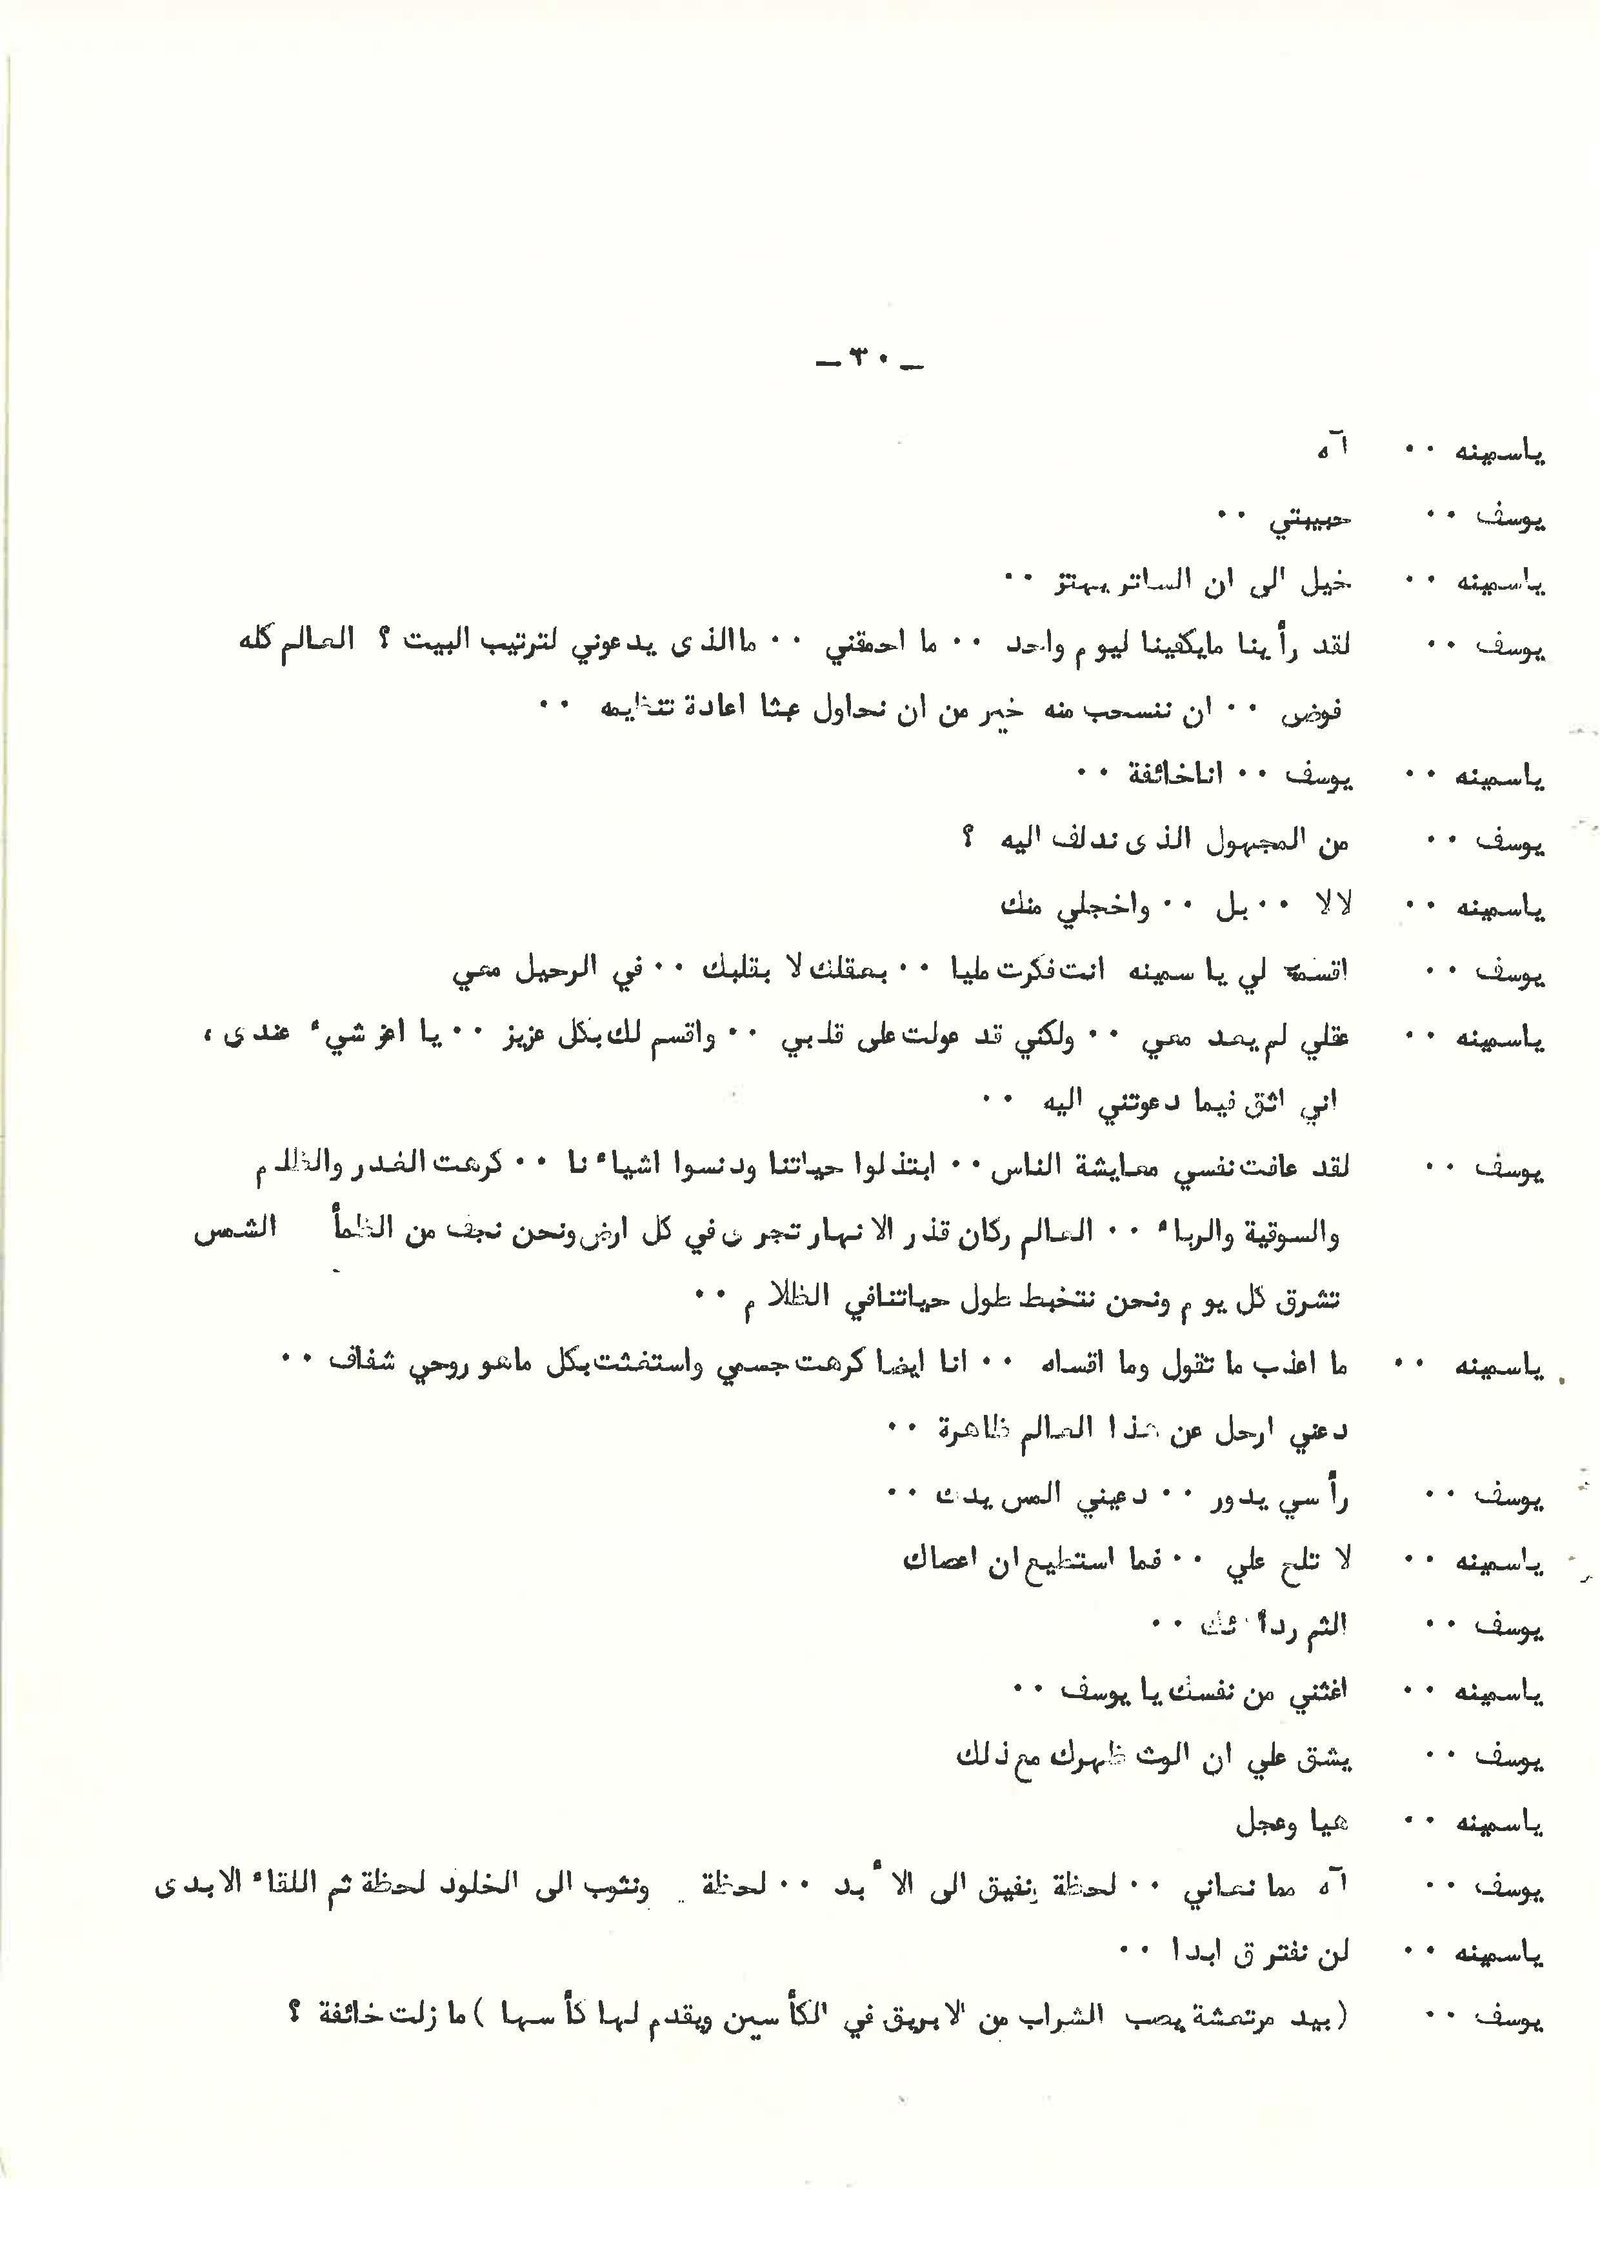 – ٣٠ –
ياسمينه ٠٠ آه
يوسف ٠٠ حبيبتي ٠٠
ياسمينه ٠٠ خيل الى ان الساتر يهتز ٠٠
يوسف ٠٠ لقد رأينا مايكفينا ليوم واحد ٠٠ ما احمقني ٠٠ ماالذى يدعوني لترتيب البيت ؟ العالم كله
فوضى ٠٠ ان ننسحب منه خير من ان نحاول عبثا اعادة تنظيمه ٠٠
ياسمينه ٠٠ يوسف ٠٠ اناخائفة ٠٠
يوسف ٠٠ من المجهول الذى ندلف اليه ؟
ياسمينه ٠٠ لالا ٠٠ بل ٠٠ واخجلي منك
يوسف ٠٠ لي ياسمينه انت فكرت مليا ٠٠ بعقلك لا بقلبك ٠٠ في الرحيل معي
ياسمينه ٠٠ عقلي لم يعد معي ٠٠ ولكني قد عولت على قلبي ٠٠ واقسم لك بكل عزيز ٠٠ يا اعز شيء عندى ،
اني اثق فيما دعوتني اليه ٠٠
يوسف ٠٠ لقد عافت نفسي معايشة الناس ٠٠ ابتذلوا حياتنا ودنسوا اشياءنا ٠٠ كرهت الغدر والظلم
والسوقية والرياء ٠٠ العالم ركان قذر الانهار تجرى في كل ارض ونحن نجف من الظمأ الشمس
تشرق كل يوم ونحن نتخبط طول حياتنافي الظلام ٠٠
ياسمينه ٠٠ ما اعذب ما تقول وما اقساه ٠٠ انا ايضا كرهت جسمي واستغثت بكل ماهو روحي شفاف ٠٠
دعني ارحل عن هذا العالم ظاهرة ٠٠
يوسف ٠٠ رأسي يدور ٠٠ دعيني المس يدك ٠٠
ياسمينه ٠٠ لا تلح علي ٠٠ فما استطيع ان اعصاك
يوسف ٠٠ الثم ردائك ٠٠
ياسمينه ٠٠ اغثني من نفسك يا يوسف ٠٠
يوسف ٠٠ يشق علي ان الوث ظهرك مع ذلك
ياسمينه ٠٠ هيا وعجل
يوسف ٠٠ آه مما نعاني ٠٠ لحظة ونفيق الى الأبد ٠٠ لحظة ونثوب الى الخلود لحظة ثم اللقاء الابدى
ياسمينه ٠٠ لن نفترق ابدا ٠٠
يوسف ٠٠ (بيد مرتعشة يصب الشراب من الابريق في الكأسين ويقدم لها كأسها) ما زلت خائفة ؟